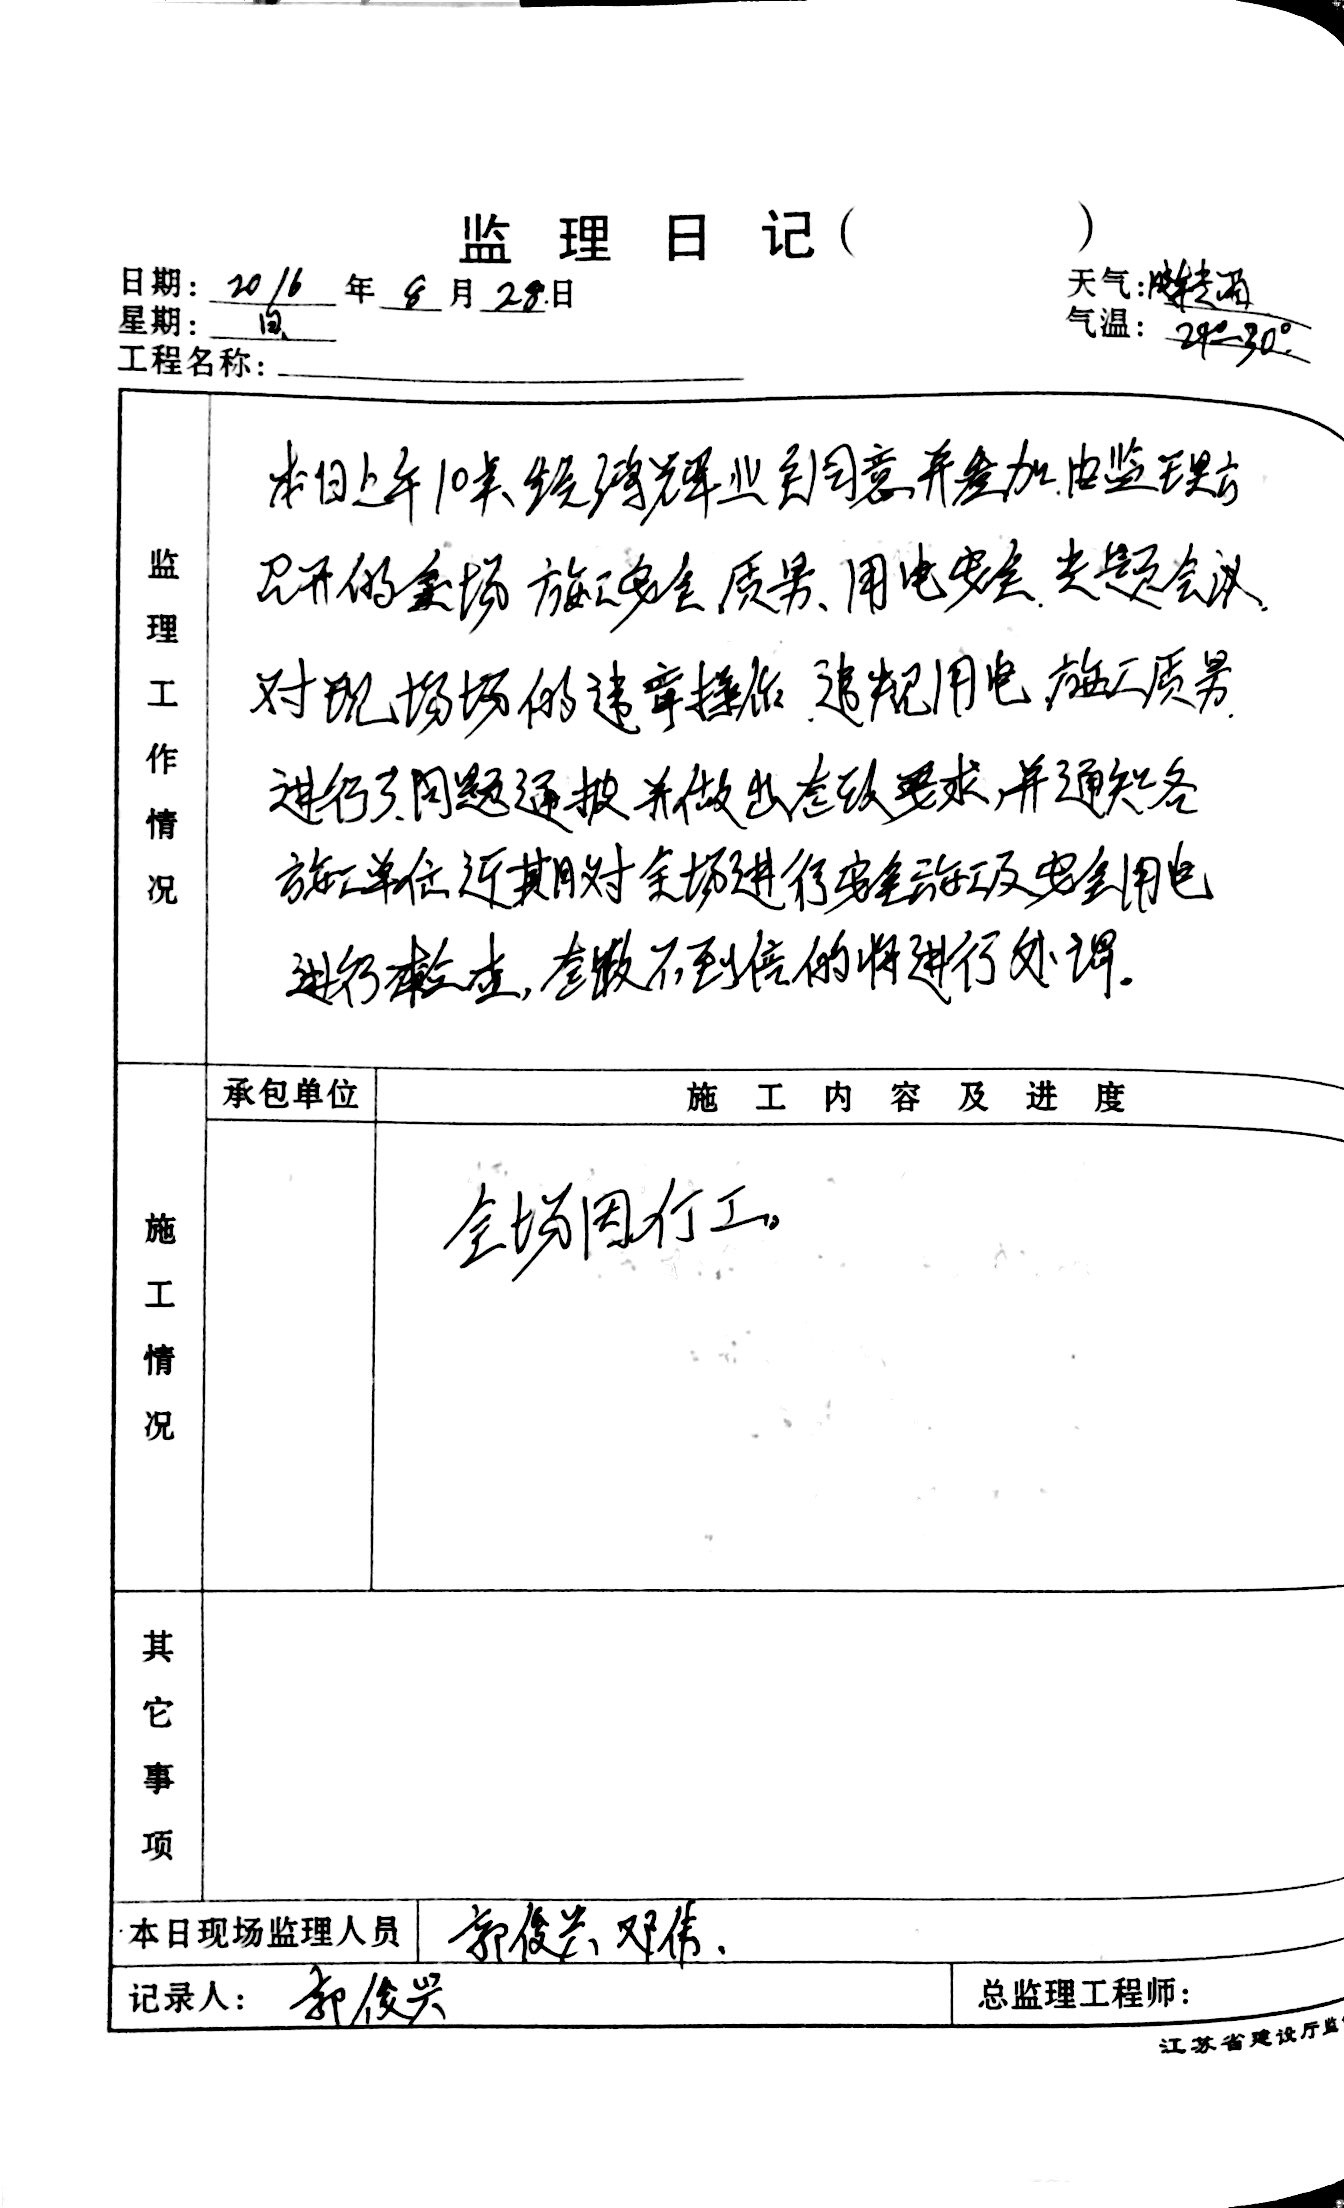 监理日记( )
日期: 2016 年 8 月 28 日
天气: 转雨
星期: 日
气温: 24°-30°
工程名称:
监理工作情况
本日上午10点、经鸿辉业主同意并参加.由监理方
召开的卖场施工安全.质量、用电安全.专题会议.
对现场场的违章操作.违规用电.施工质量.
进行了问题通报并做出整改要求,并通知各
施工单位近期对全场进行安全施工及安全用电
进行检查,整改不到位的将进行处理。
承包单位
施工内容及进度
施工情况
全场因停工。
其它事项
本日现场监理人员
郭俊兴、邓伟、
记录人: 郭俊兴
总监理工程师:
江苏省建设厅监